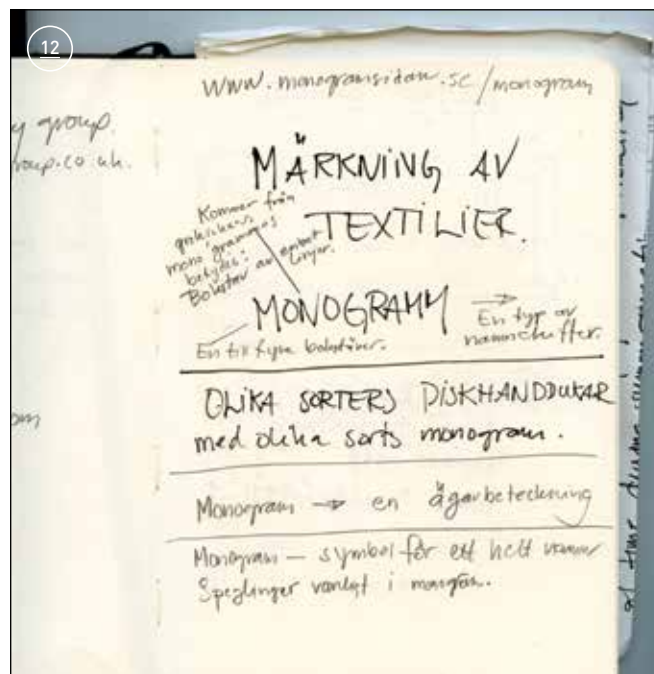 12
y group.
roup.co.uk.
www.monogramsidan.se/monogram
MÄRKNING AV
TEXTILIER.
Kommer från
grekiskans
mono grammos
betyder:
Bokstav av enbart
linjer.
MONOGRAMM
En typ av
namnchiffer.
En till fyra bokstäver.
OLIKA SORTERS DISKHANDDUKAR
med olika sorts monogram.
Monogram → en ägarbeteckning
Monogram — symbol för ett helt namn
Speglingar vanligt i